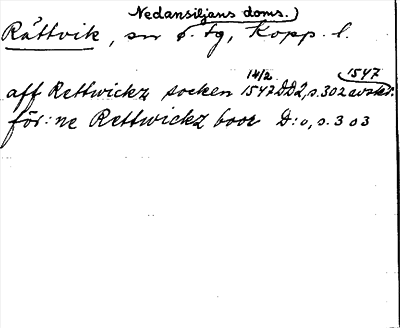 Nedansiljans doms.)
Rättvik, sn o. tg, Kopp. l.
14/2 1547
aff Rettwickz socken 1547 DD2, s. 302 avskr.
för:ne Rettwickz boer D:o, s. 303